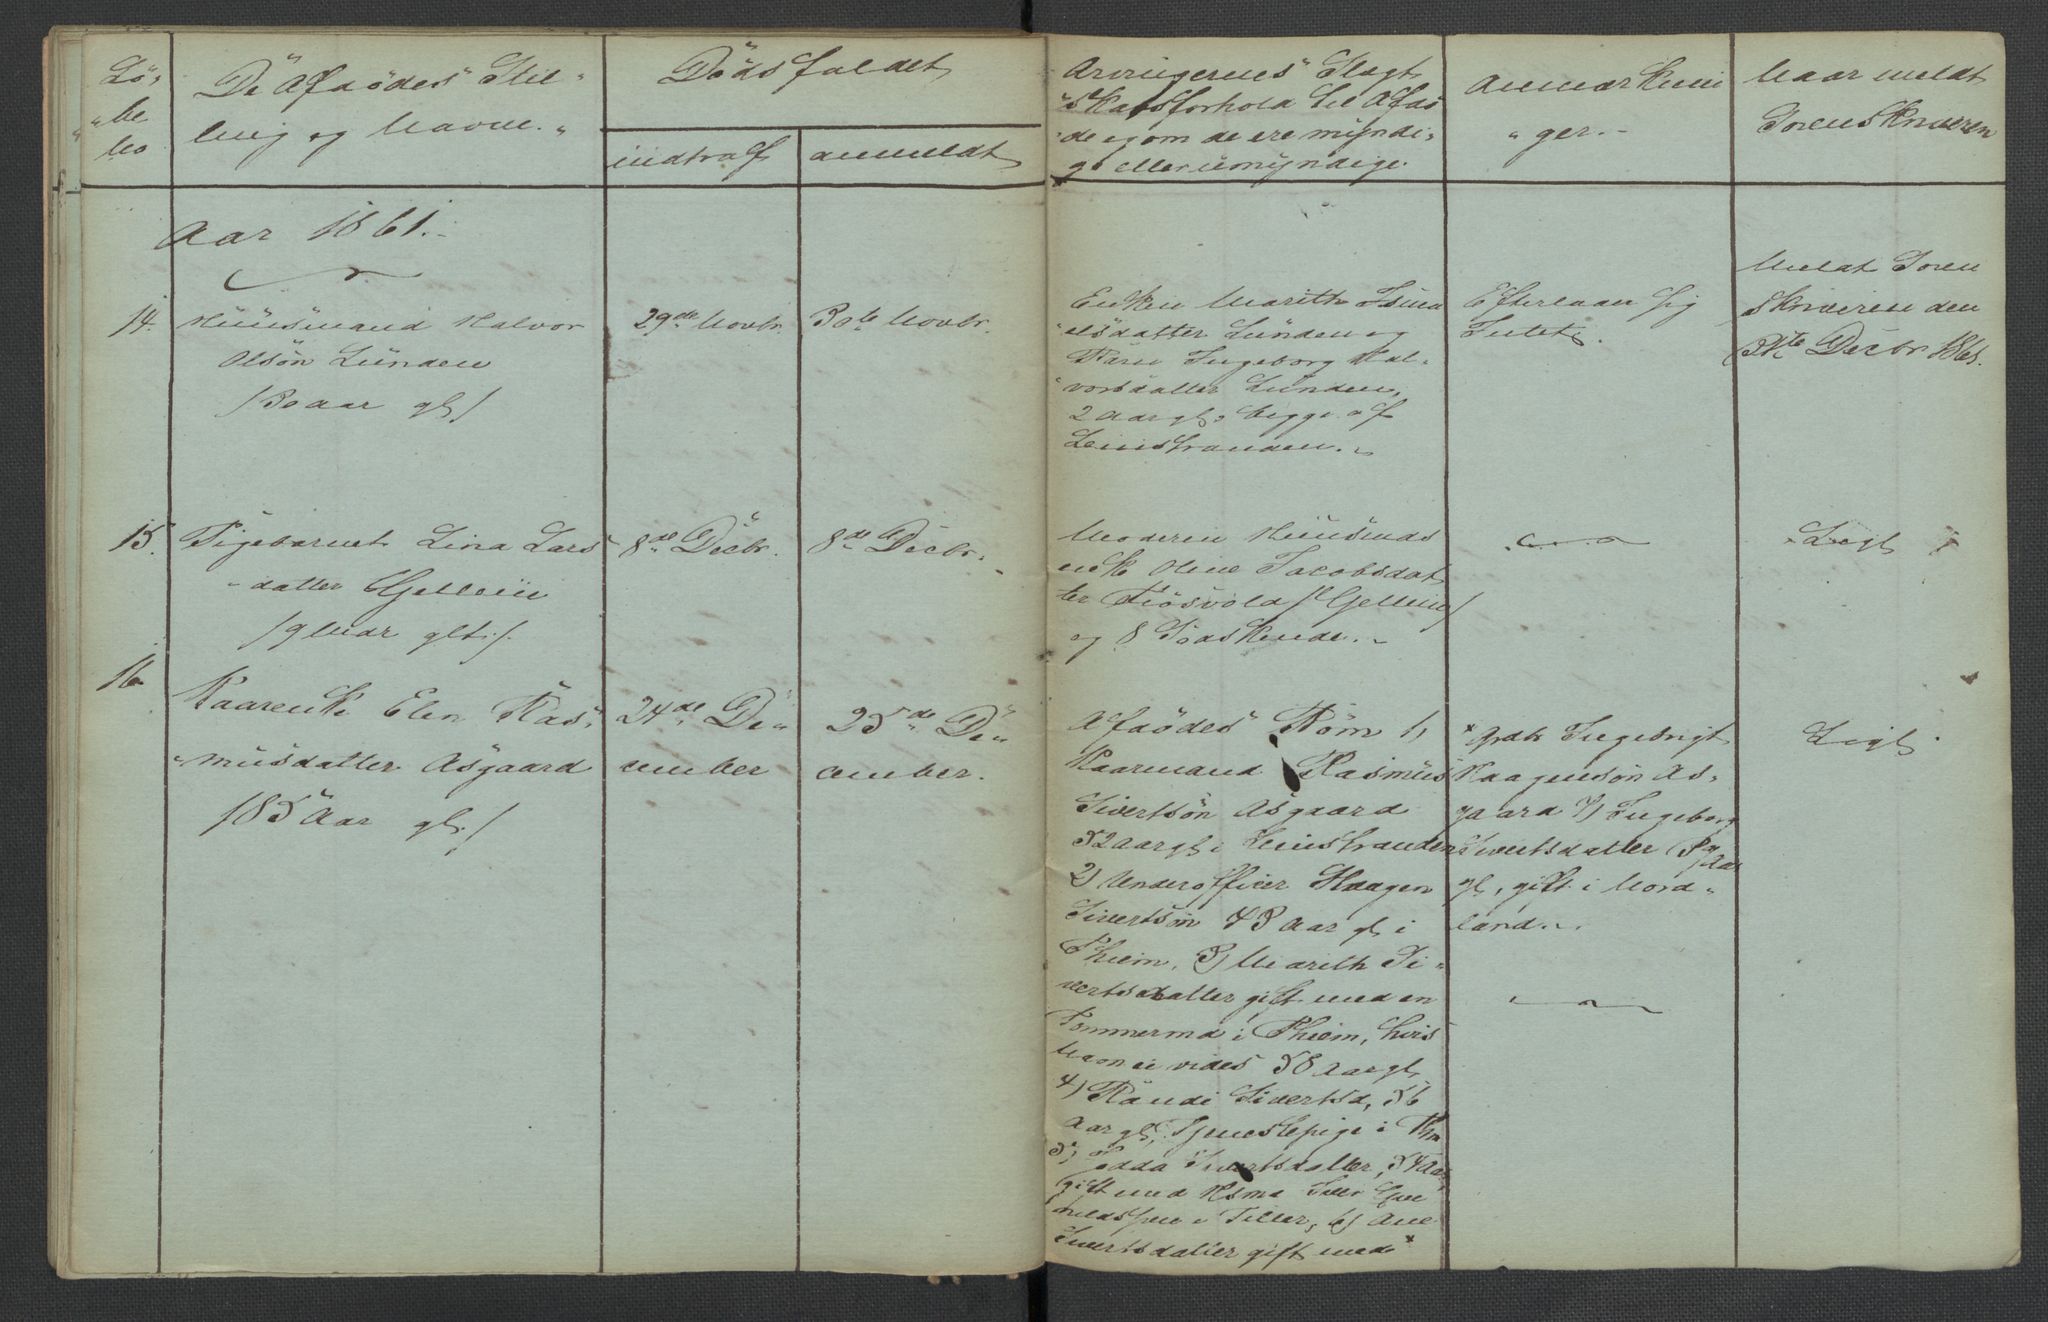 Lö-
be
No
De Afdödes Stil-
ling og Navne.
Dödsfaldet
indtraf
anmeldt
Arvingernes Slægt
skabsforhold til Afdö
de og om de ere myndi-
ge eller umyndige.
Anmærknin
ger.
Naar meldt
Sorenskriveren
Aar 1861.
14.
Huusmand Halvor
Olsön Lunden
/30 aar gl/
29de Novbr.
30te Novbr.
Enken Marith
datter Lunden og
Barn Ingeborg Hal-
vorsdatter Lunden,
2 Aar gl, begge af
Leinstranden.
Efterlaan sig
Intet.
Meldt Soren
skriveren den
31te Decbr 1861.
15.
Pigebarnet Lina Lars
datter Gjellein
/9 Mdr glt./.
8de Decbr.
8de Decbr.
Moderen Huusmds
enke Oline Jacobsdat
ter Fiösvold /Gjellein/
og 8 Södskende.
Ligl
16
Kaarenke Elen Ras-
musdatter Asgaard
/85 Aar gl./
24de De-
cember
25de De-
cember.
Afdödes Börn 1)
Kaarmand Rasmus
Sivertsön Asgaard
52 Aar gl i Leinstranden
2) Underofficer Haagen
Sivertsön 43 Aar gl i
Thiem, 3) Marith Si-
vertsdatter gift med en
Tømmermd i Thiem, hvis
Navn ei vides 58 Aar gl
4) Randi Sivertsd, 56
Aar gl, Tjenestepige i Thm
5) Sivertsdatter, 54 Aar,
gift med Hsmd Iver
i Tiller, 6) Ane
Sivertsdatter gift med *
* Grdb Ingebrigt
Haagensön As-
gaard 7) Ingeborg
Sivertsdatter Aar
gl, gift i Nord-
land.
Ligl.